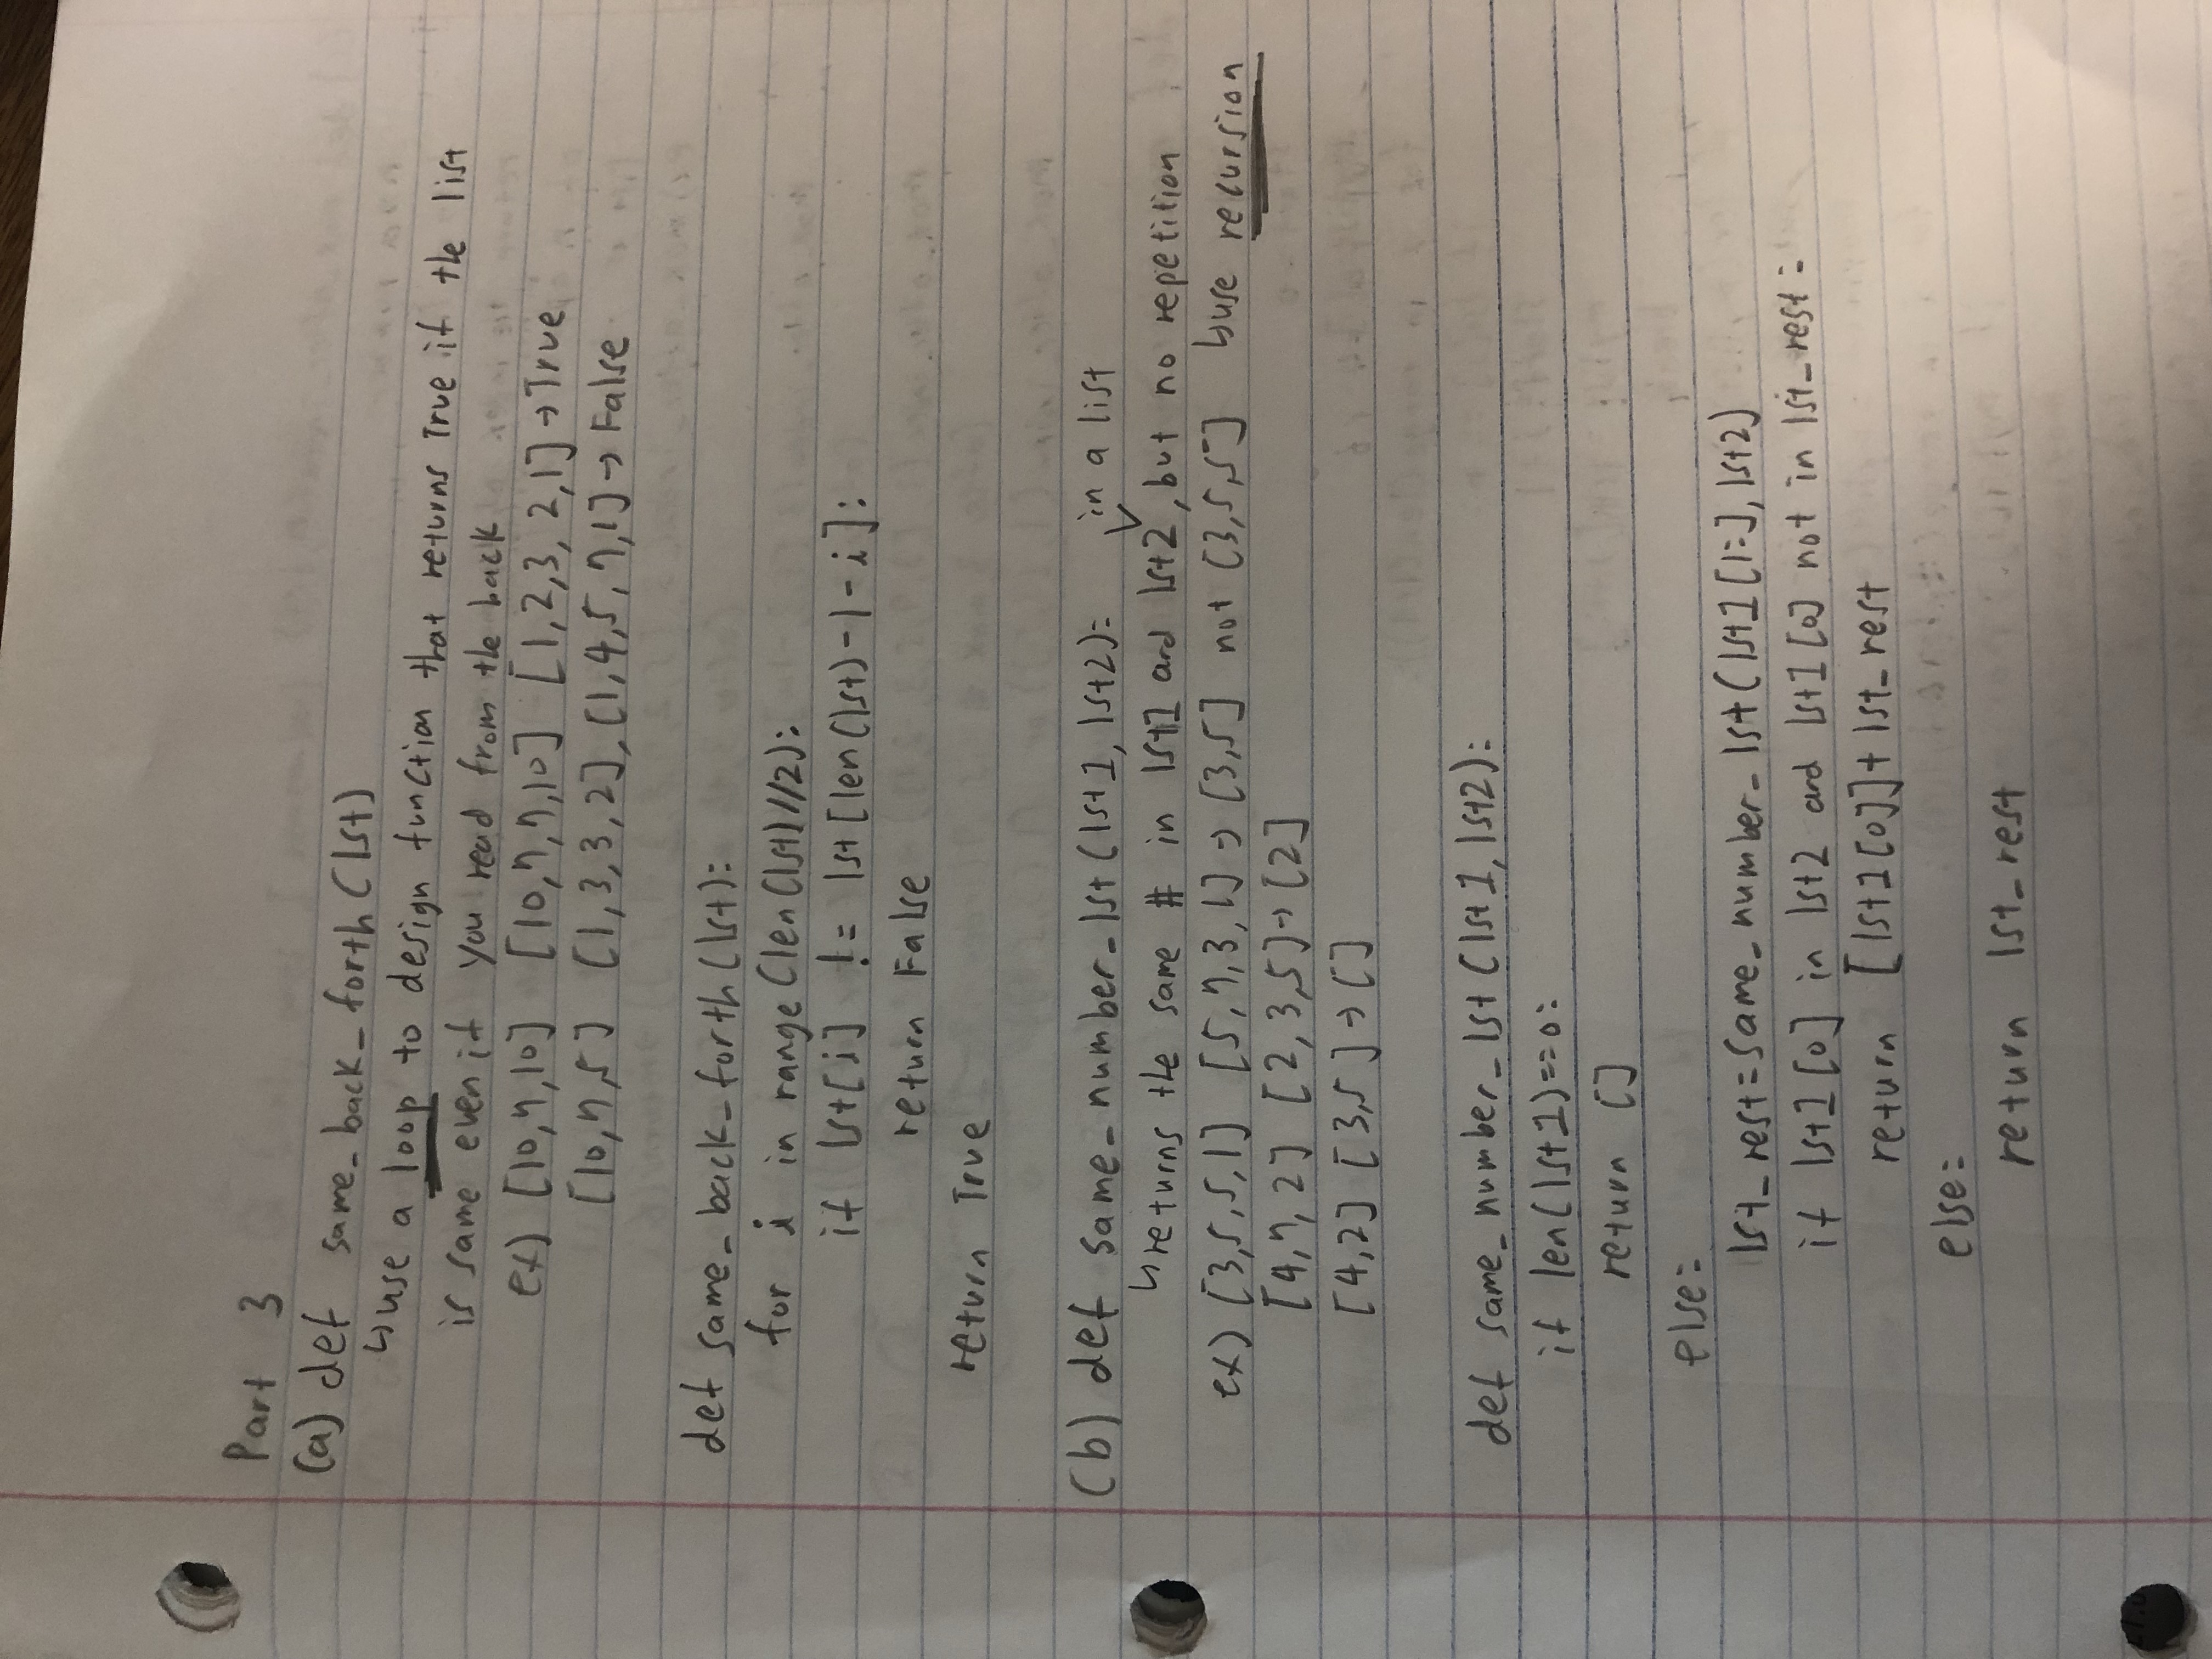 Part 3
(a) def same_back_forth(lst)
↳use a loop to design function that returns True if the list
is same even if you read from the back
ex) [10,7,10] [10,7,7,10] [1,2,3,2,1]→True
[10,7,5] [1,3,3,2],[1,4,5,7,1]→False
def same_back_forth(lst):
for i in range(len(lst)//2):
if lst[i] != lst[len(lst)-1-i]:
return False
return True
(b) def same_number_lst(lst1, lst2): in a list
↳returns the same # in lst1 and lst2, but no repetition
ex) [3,5,5,1] [5,7,3,1]→[3,5] not [3,5,5] ↳use recursion
[4,7,2] [2,3,5]→[2]
[4,2] [3,5]→[]
def same_number_lst(lst1, lst2):
if len(lst1)==0:
return []
else:
lst_rest=same_number_lst(lst1[1:], lst2)
if lst1[0] in lst2 and lst1[0] not in lst_rest:
return [lst1[0]]+lst_rest
else:
return lst_rest